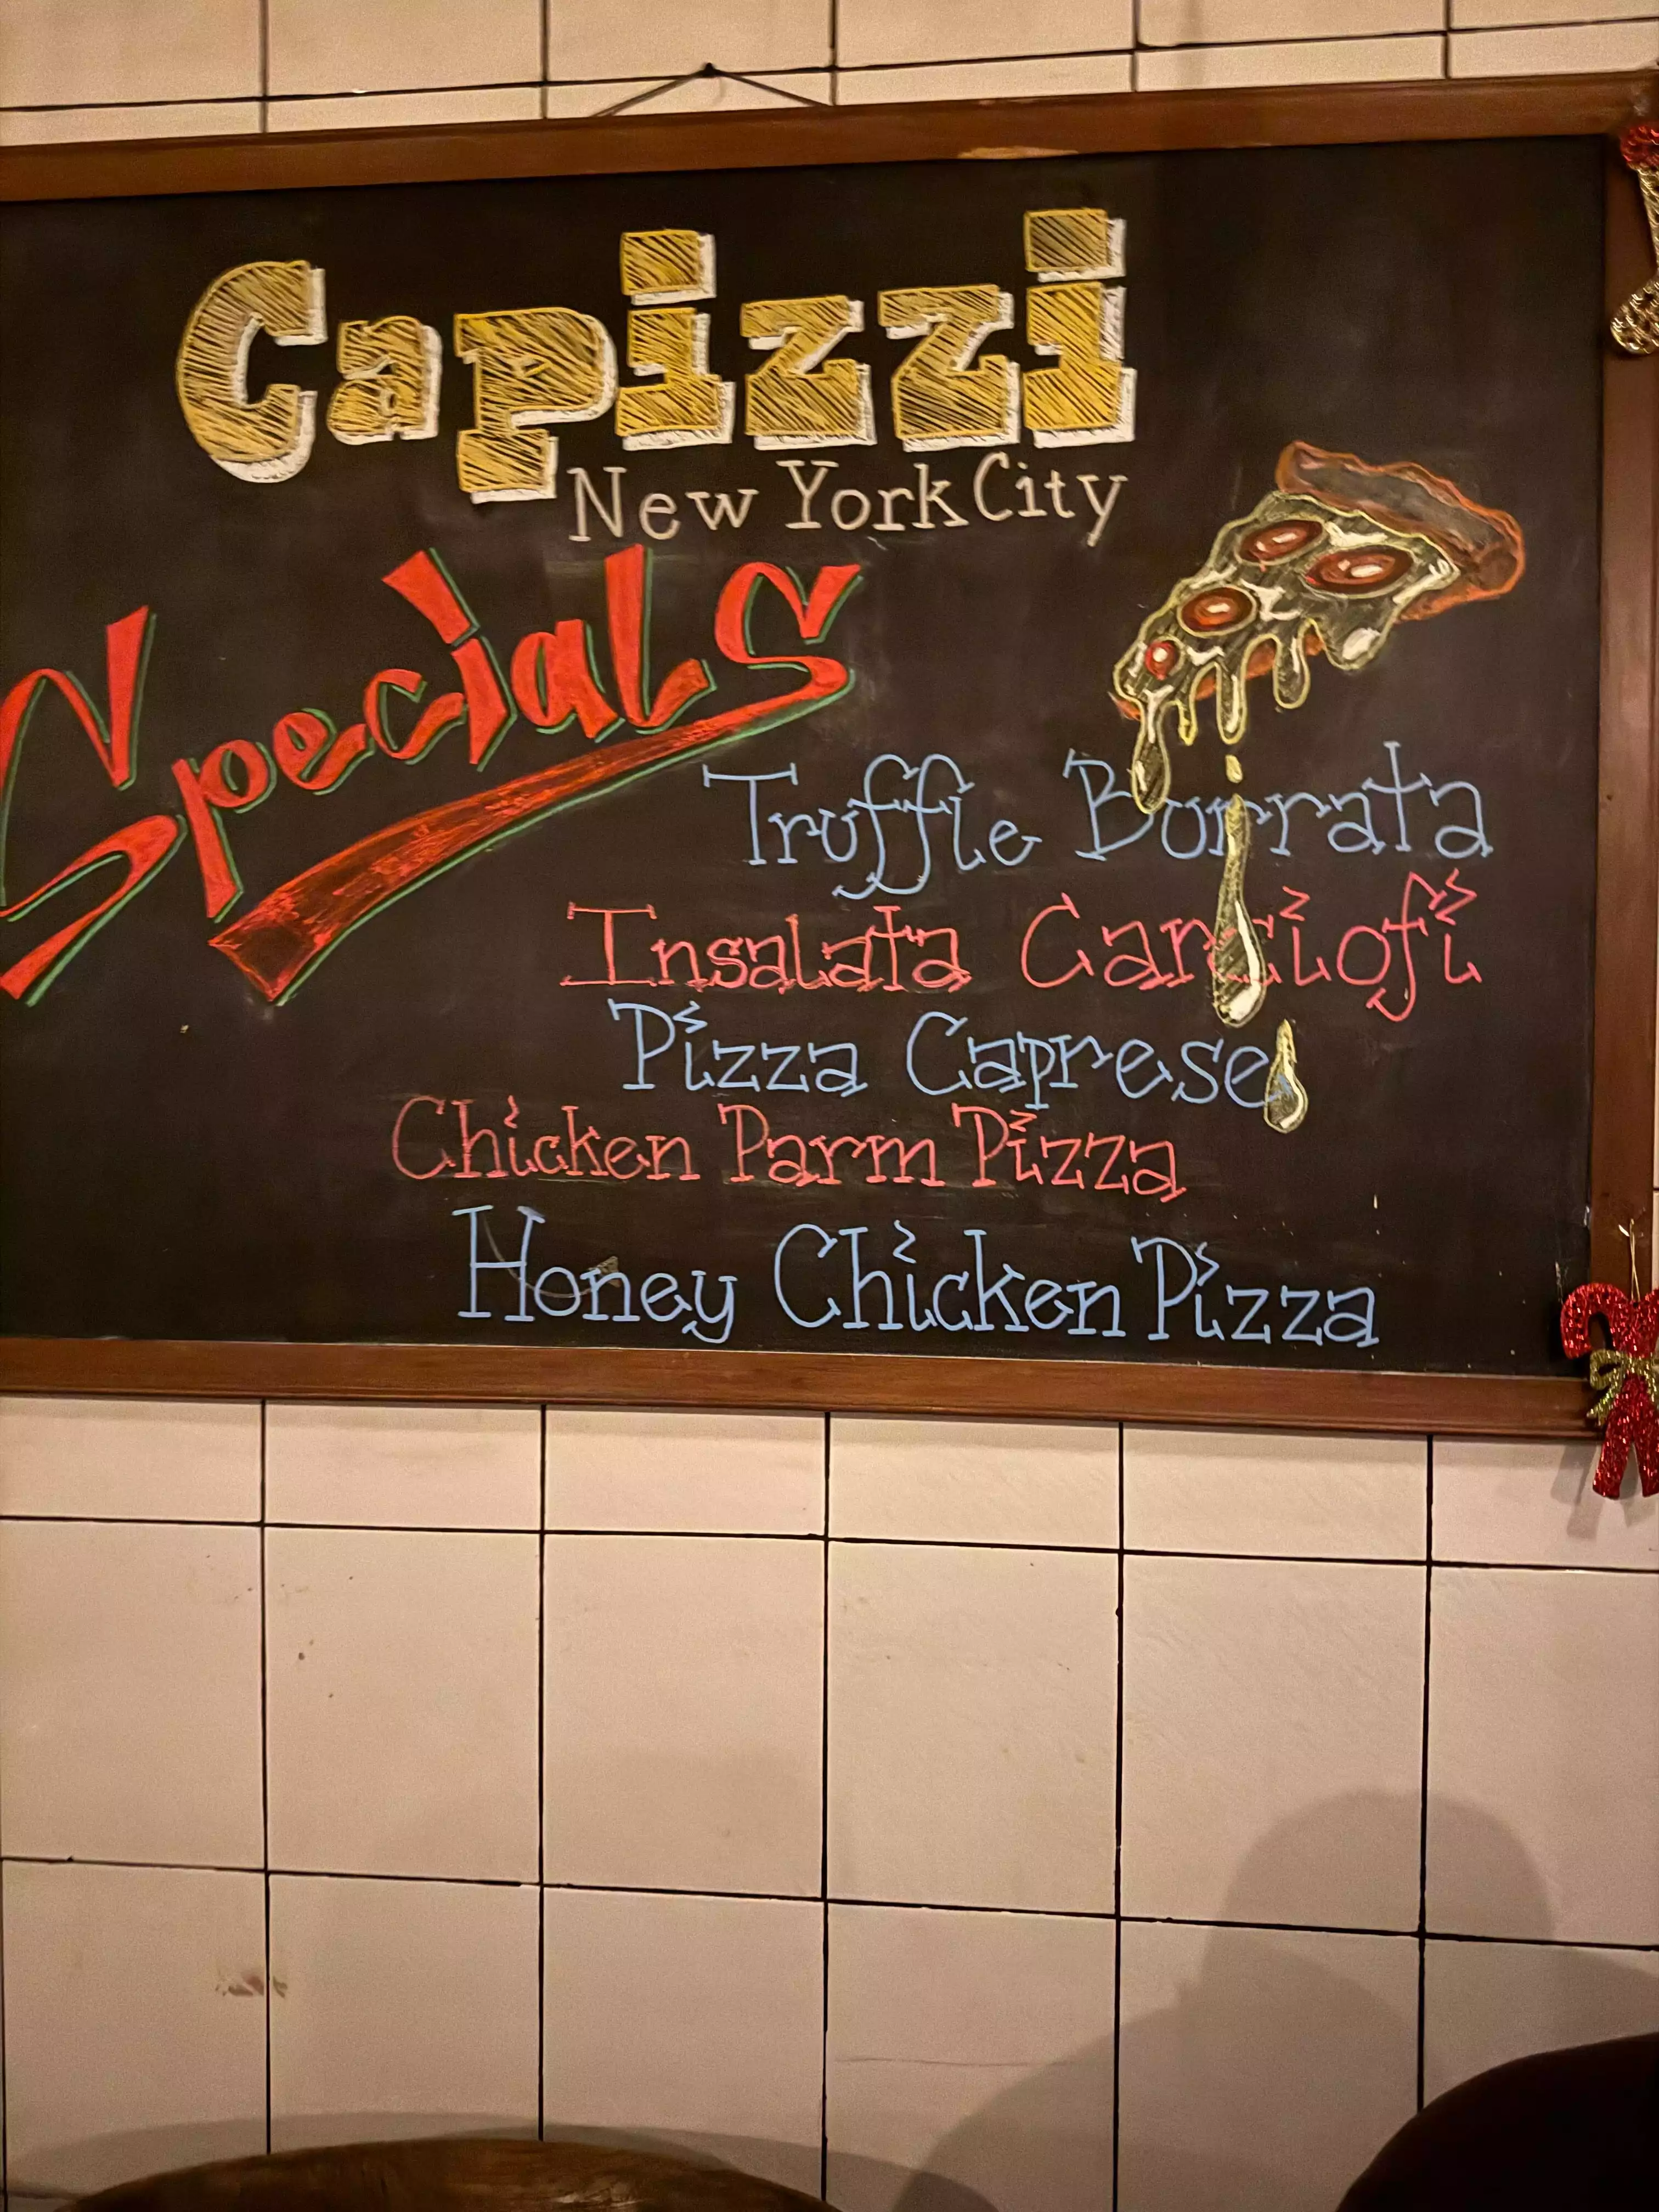 Capizzi
New York City
Specials
Truffle Burrata
Insalata Carciofi
Pizza Caprese
Chicken Parm Pizza
Honey Chicken Pizza